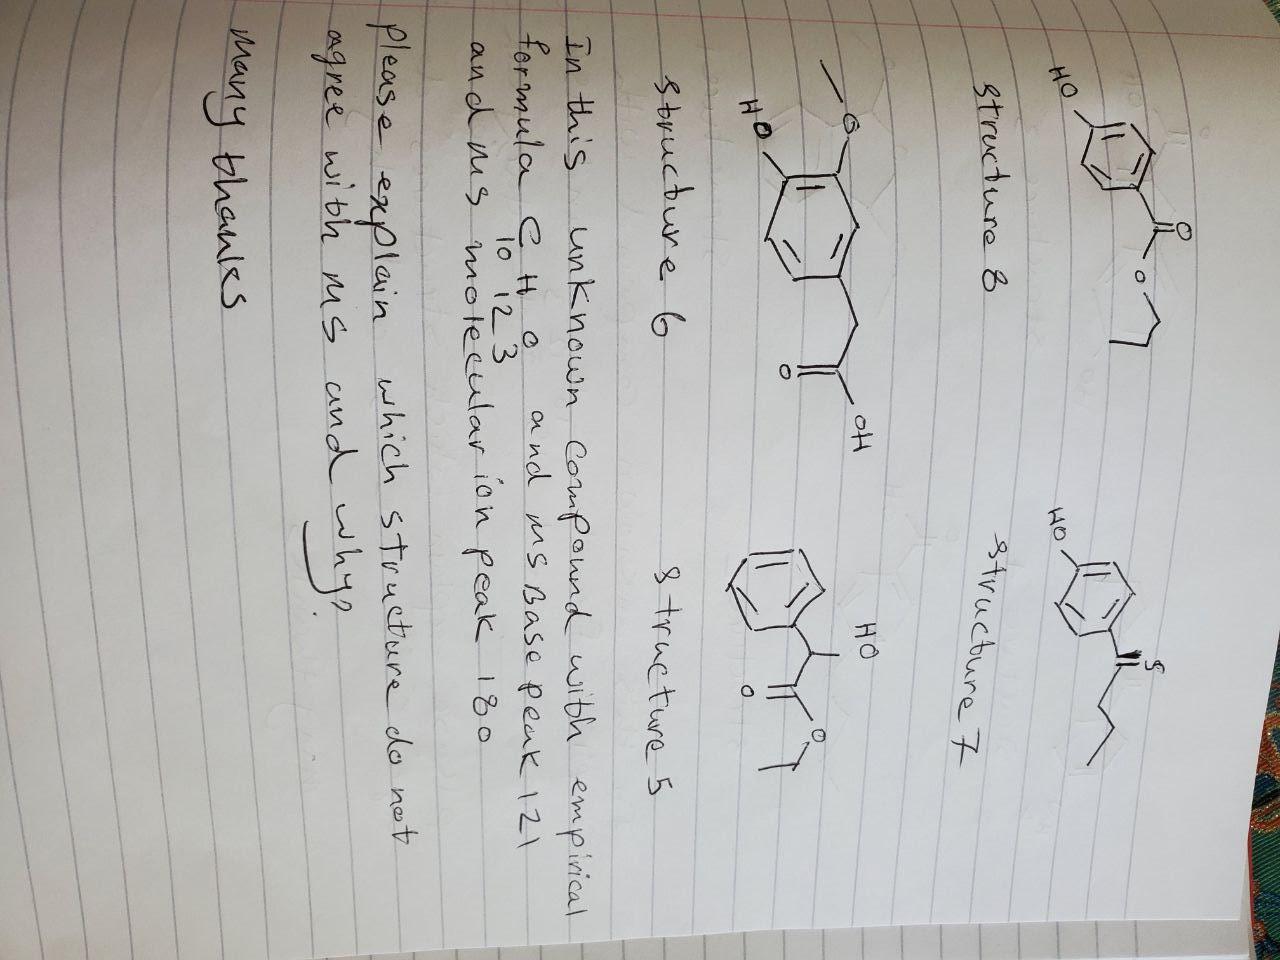 HO
O
O
HO
S
structure 8
structure 7
O
HO
O
OH
HO
O
O
structure 6
structure 5
In this unknown compound with empirical
formula C10 H12 O3 and ms Base peak 121
and ms molecular ion peak 180
please explain which structure do not
agree with ms and why?
many thanks